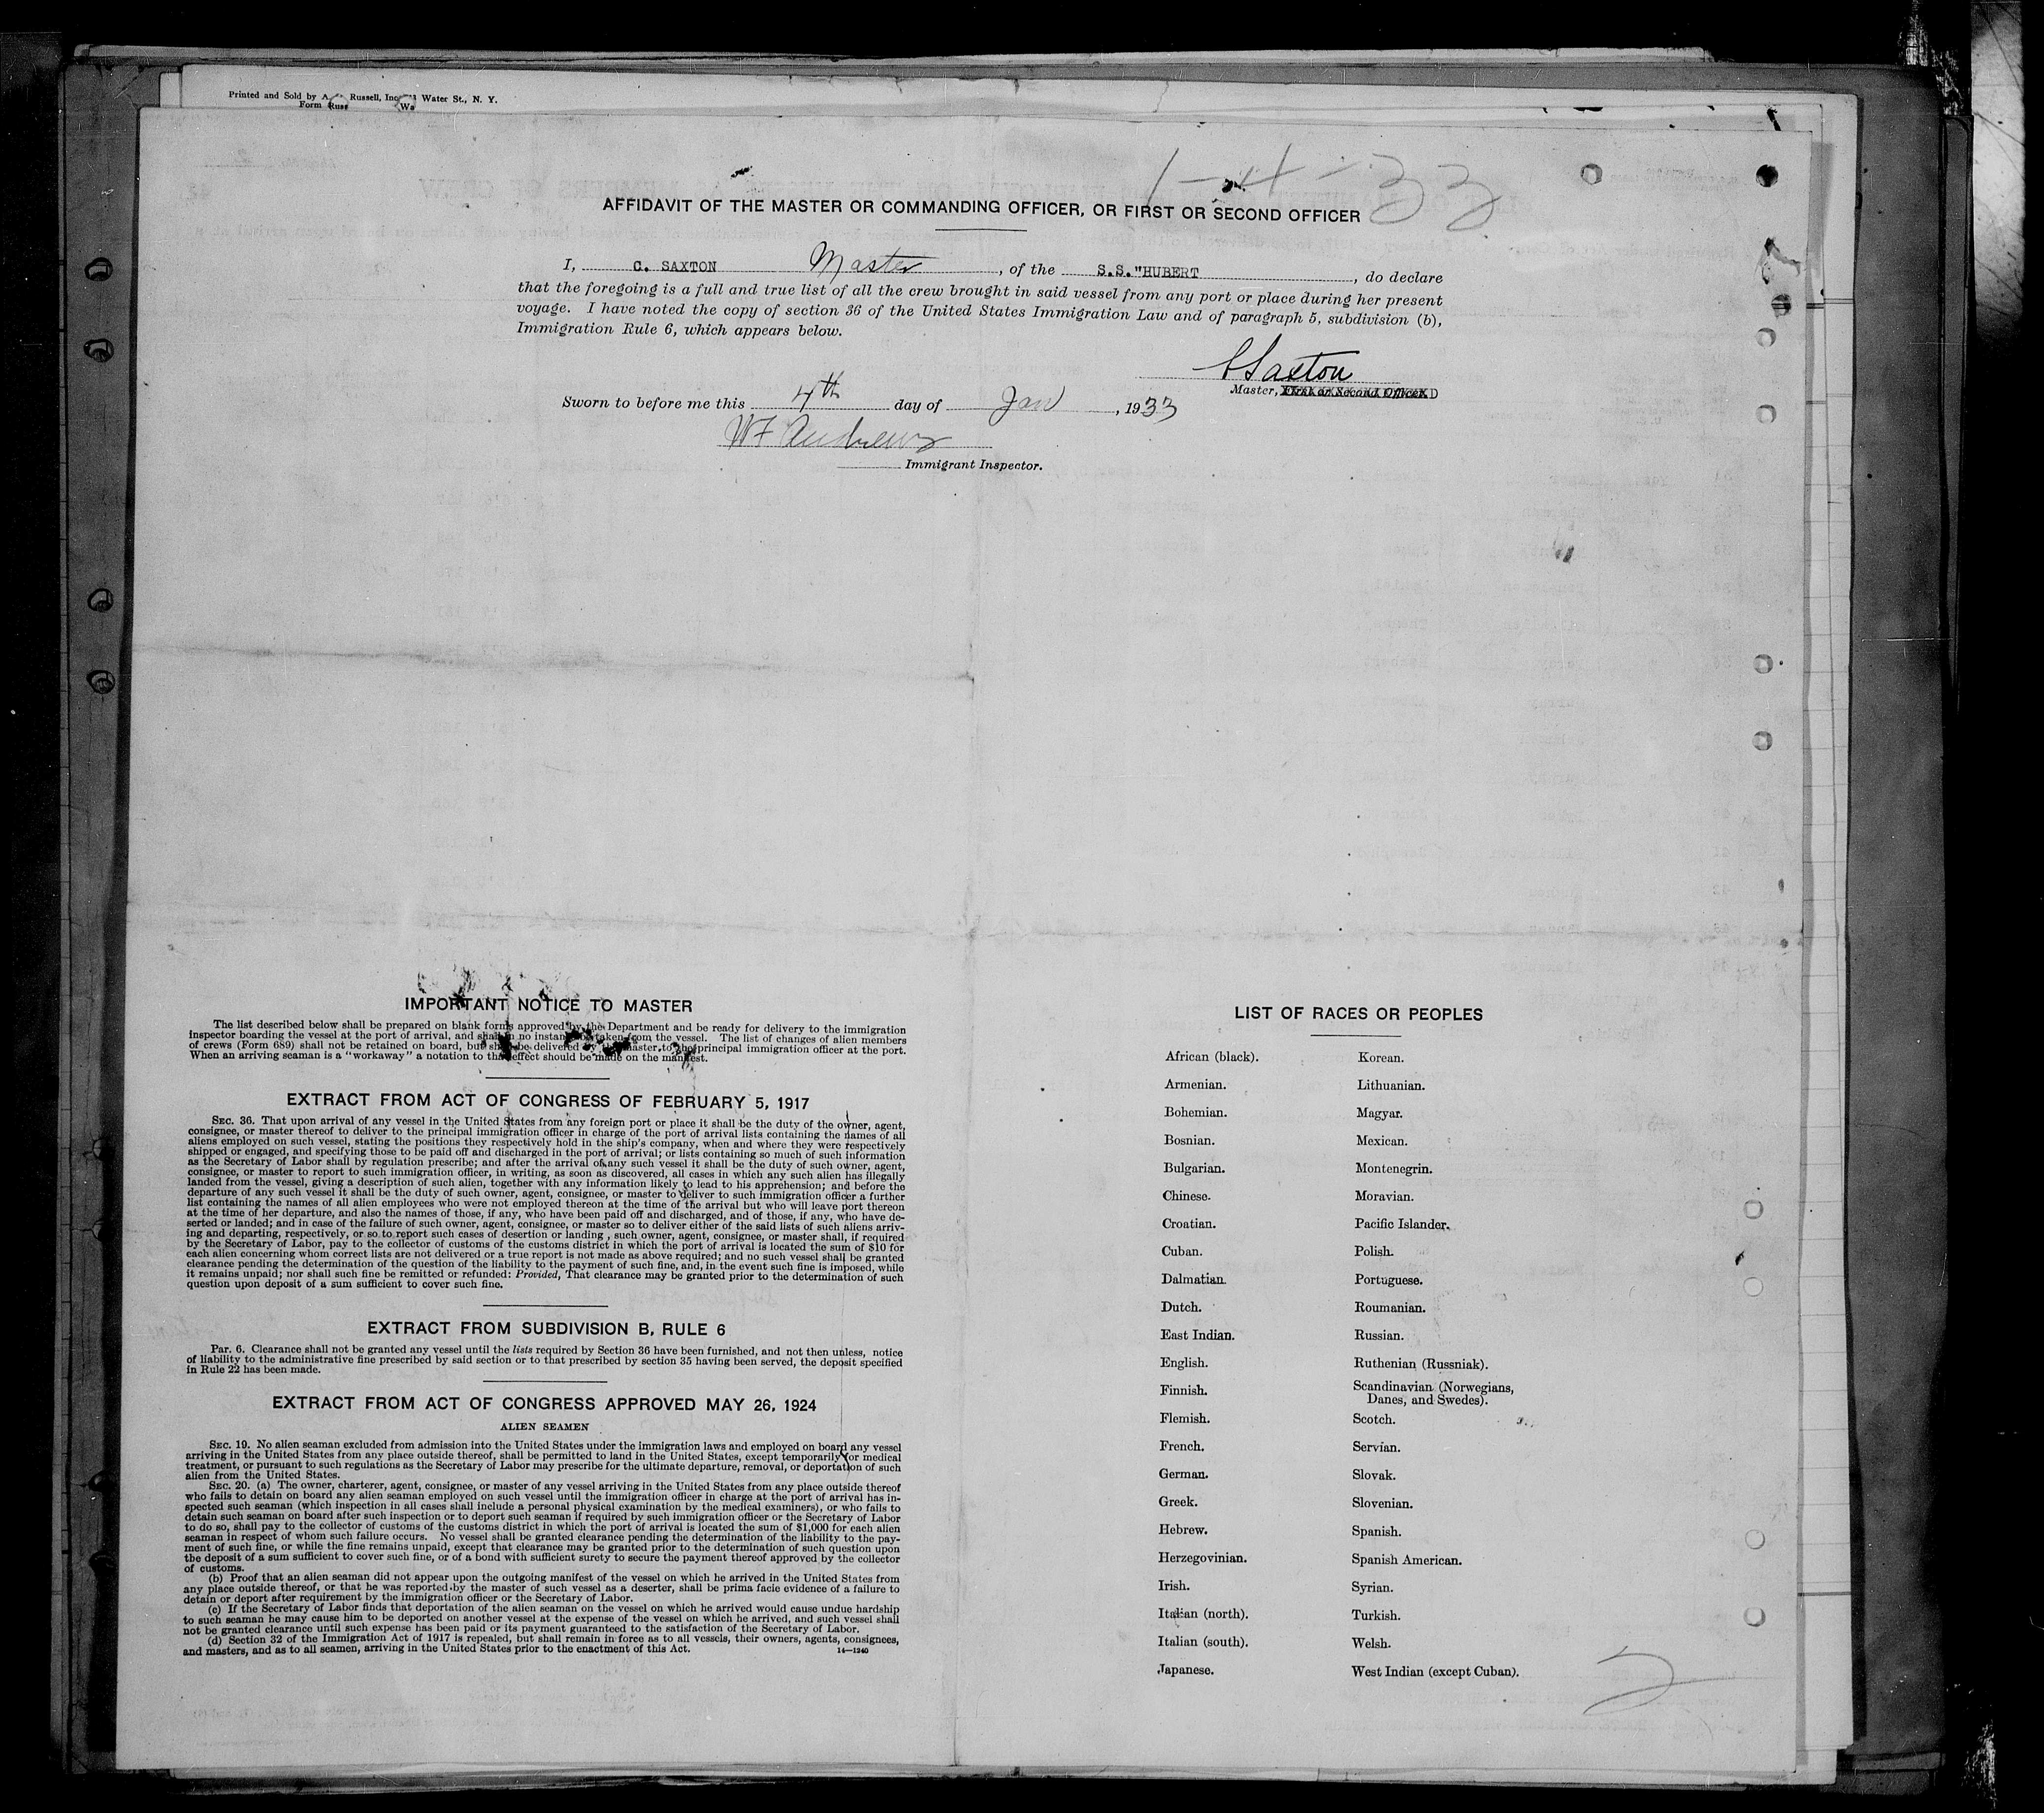 Printed and Sold by A. Russell, Inc. Water St., N. Y.
Form Russ Wa
1-4-33
AFFIDAVIT OF THE MASTER OR COMMANDING OFFICER, OR FIRST OR SECOND OFFICER
I, C. SAXTON Master, of the S.S."HUBERT, do declare
that the foregoing is a full and true list of all the crew brought in said vessel from any port or place during her present
voyage. I have noted the copy of section 36 of the United States Immigration Law and of paragraph 5, subdivision (b),
Immigration Rule 6, which appears below.
C Saxton
Master, First or Second Officer.
Sworn to before me this 4th day of Jan, 1933
WF Andrews
Immigrant Inspector.
IMPORTANT NOTICE TO MASTER
The list described below shall be prepared on blank forms approved by the Department and be ready for delivery to the immigration
inspector boarding the vessel at the port of arrival, and shall in no instance be taken from the vessel. The list of changes of alien members
of crews (Form 689) shall not be retained on board, but shall be delivered by the master to the principal immigration officer at the port.
When an arriving seaman is a "workaway" a notation to that effect should be made on the manifest.
EXTRACT FROM ACT OF CONGRESS OF FEBRUARY 5, 1917
SEC. 36. That upon arrival of any vessel in the United States from any foreign port or place it shall be the duty of the owner, agent,
consignee, or master thereof to deliver to the principal immigration officer in charge of the port of arrival lists containing the names of all
aliens employed on such vessel, stating the positions they respectively hold in the ship's company, when and where they were respectively
shipped or engaged, and specifying those to be paid off and discharged in the port of arrival; or lists containing so much of such information
as the Secretary of Labor shall by regulation prescribe; and after the arrival of any such vessel it shall be the duty of such owner, agent,
consignee, or master to report to such immigration officer, in writing, as soon as discovered, all cases in which any such alien has illegally
landed from the vessel, giving a description of such alien, together with any information likely to lead to his apprehension; and before the
departure of any such vessel it shall be the duty of such owner, agent, consignee, or master to deliver to such immigration officer a further
list containing the names of all alien employees who were not employed thereon at the time of the arrival but who will leave port thereon
at the time of her departure, and also the names of those, if any, who have been paid off and discharged, and of those, if any, who have de-
serted or landed; and in case of the failure of such owner, agent, consignee, or master so to deliver either of the said lists of such aliens arriv-
ing and departing, respectively, or so to report such cases of desertion or landing , such owner, agent, consignee, or master shall, if required
by the Secretary of Labor, pay to the collector of customs of the customs district in which the port of arrival is located the sum of $10 for
each alien concerning whom correct lists are not delivered or a true report is not made as above required; and no such vessel shall be granted
clearance pending the determination of the question of the liability to the payment of such fine, and, in the event such fine is imposed, while
it remains unpaid; nor shall such fine be remitted or refunded: Provided, That clearance may be granted prior to the determination of such
question upon deposit of a sum sufficient to cover such fine.
EXTRACT FROM SUBDIVISION B, RULE 6
Par. 6. Clearance shall not be granted any vessel until the lists required by Section 36 have been furnished, and not then unless, notice
of liability to the administrative fine prescribed by said section or to that prescribed by section 35 having been served, the deposit specified
in Rule 22 has been made.
EXTRACT FROM ACT OF CONGRESS APPROVED MAY 26, 1924
ALIEN SEAMEN
SEC. 19. No alien seaman excluded from admission into the United States under the immigration laws and employed on board any vessel
arriving in the United States from any place outside thereof, shall be permitted to land in the United States, except temporarily for medical
treatment, or pursuant to such regulations as the Secretary of Labor may prescribe for the ultimate departure, removal, or deportation of such
alien from the United States.
SEC. 20. (a) The owner, charterer, agent, consignee, or master of any vessel arriving in the United States from any place outside thereof
who fails to detain on board any alien seaman employed on such vessel until the immigration officer in charge at the port of arrival has in-
spected such seaman (which inspection in all cases shall include a personal physical examination by the medical examiners), or who fails to
detain such seaman on board after such inspection or to deport such seaman if required by such immigration officer or the Secretary of Labor
to do so, shall pay to the collector of customs of the customs district in which the port of arrival is located the sum of $1,000 for each alien
seaman in respect of whom such failure occurs. No vessel shall be granted clearance pending the determination of the liability to the pay-
ment of such fine, or while the fine remains unpaid, except that clearance may be granted prior to the determination of such question upon
the deposit of a sum sufficient to cover such fine, or of a bond with sufficient surety to secure the payment thereof approved by the collector
of customs.
(b) Proof that an alien seaman did not appear upon the outgoing manifest of the vessel on which he arrived in the United States from
any place outside thereof, or that he was reported by the master of such vessel as a deserter, shall be prima facie evidence of a failure to
detain or deport after requirement by the immigration officer or the Secretary of Labor.
(c) If the Secretary of Labor finds that deportation of the alien seaman on the vessel on which he arrived would cause undue hardship
to such seaman he may cause him to be deported on another vessel at the expense of the vessel on which he arrived, and such vessel shall
not be granted clearance until such expense has been paid or its payment guaranteed to the satisfaction of the Secretary of Labor.
(d) Section 32 of the Immigration Act of 1917 is repealed, but shall remain in force as to all vessels, their owners, agents, consignees,
and masters, and as to all seamen, arriving in the United States prior to the enactment of this Act. 14—1240
LIST OF RACES OR PEOPLES
African (black). Korean.
Armenian. Lithuanian.
Bohemian. Magyar.
Bosnian. Mexican.
Bulgarian. Montenegrin.
Chinese. Moravian.
Croatian. Pacific Islander.
Cuban. Polish.
Dalmatian. Portuguese.
Dutch. Roumanian.
East Indian. Russian.
English. Ruthenian (Russniak).
Finnish. Scandinavian (Norwegians,
Danes, and Swedes).
Flemish. Scotch.
French. Servian.
German. Slovak.
Greek. Slovenian.
Hebrew. Spanish.
Herzegovinian. Spanish American.
Irish. Syrian.
Italian (north). Turkish.
Italian (south). Welsh.
Japanese. West Indian (except Cuban).
2